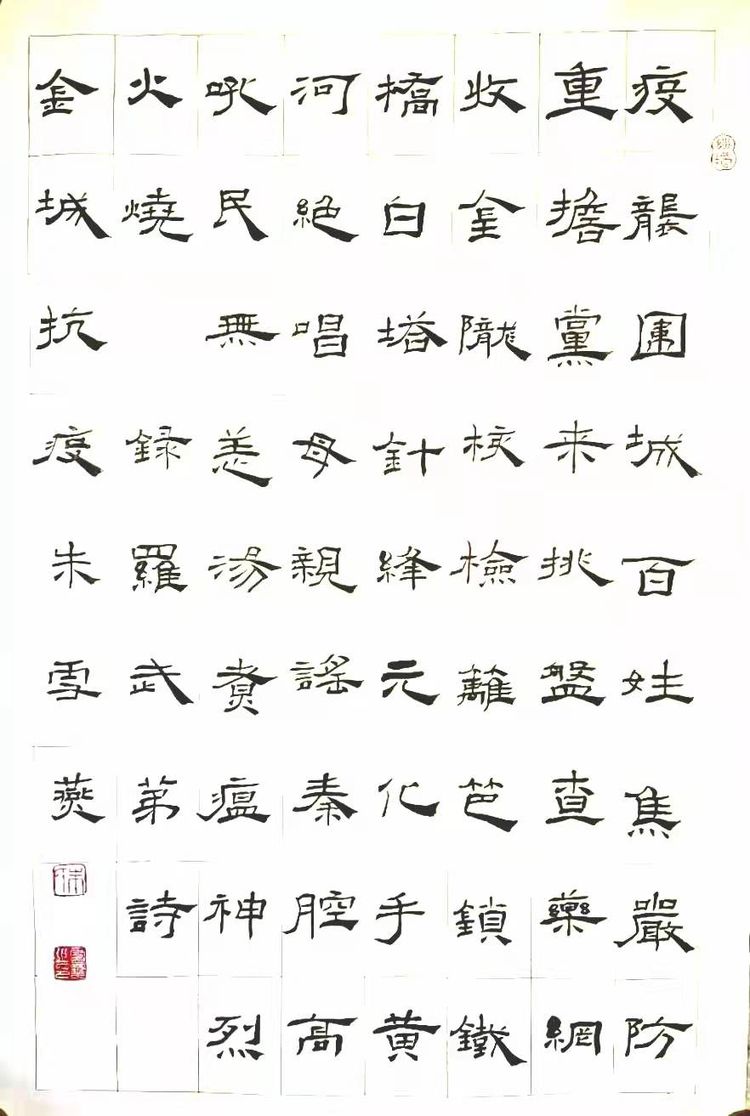 疫襲圍城百姓焦嚴防
重擔黨来挑盤查藥網
收金隴核檢籬笆鎖鐵
橋白塔針縫元化手黄
河絶唱母親謠秦腔高
吼民無恙湯煮瘟神烈
火燒 録羅武苐詩
金城抗疫朱雪燕